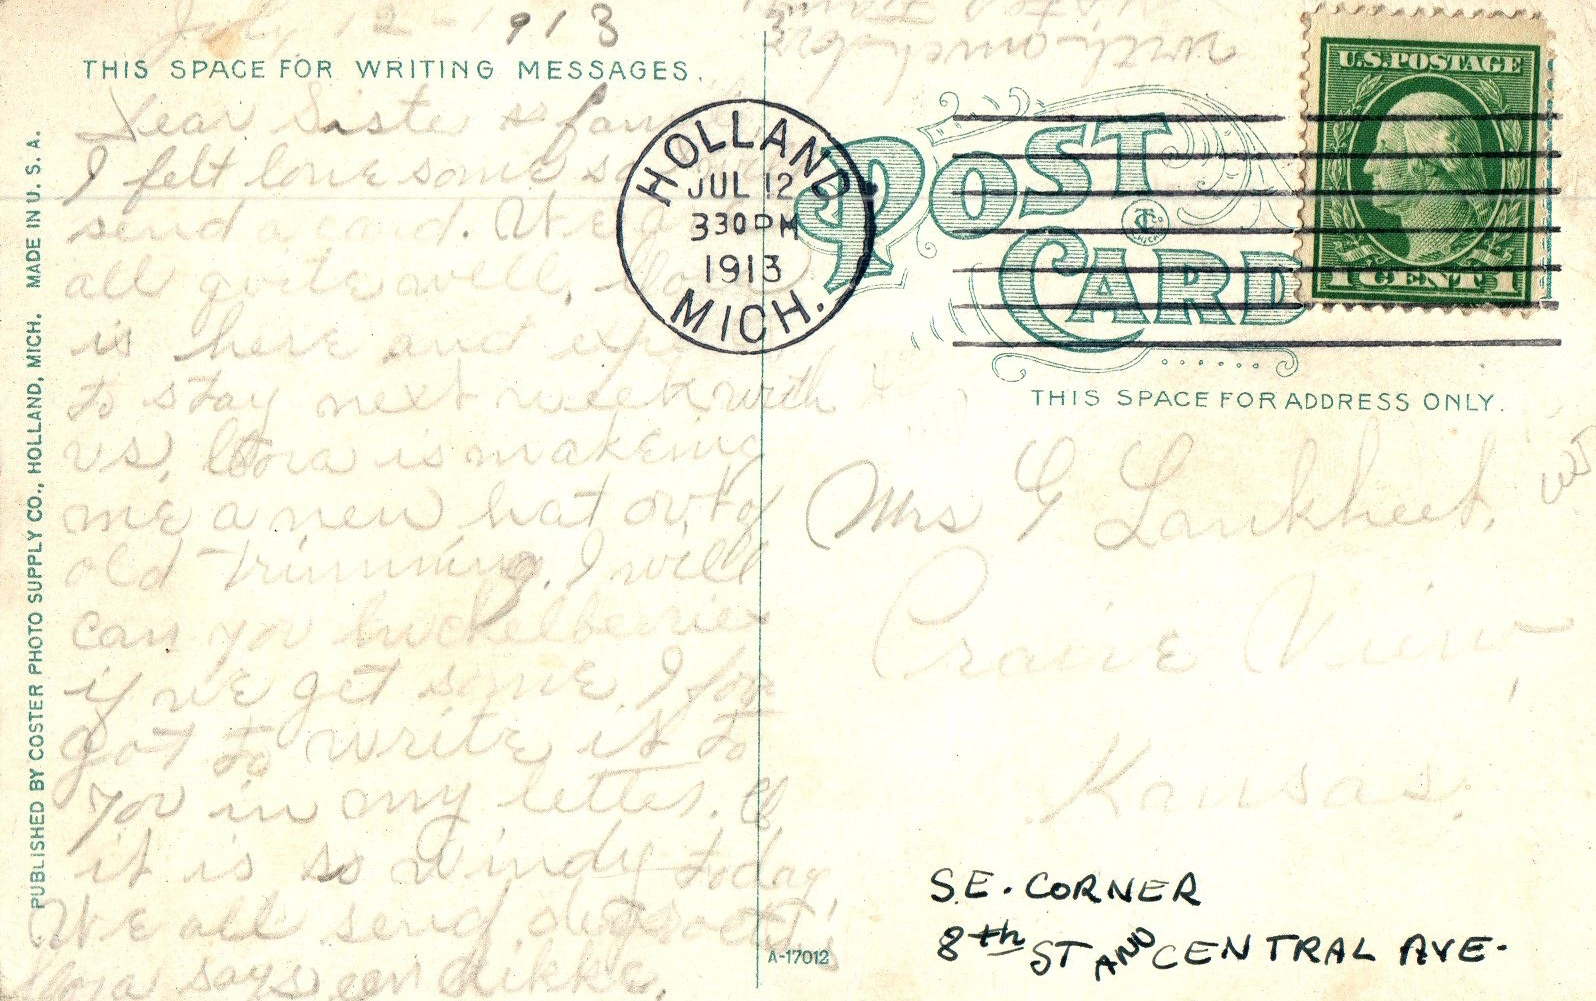 July 12 - 1913
THIS SPACE FOR WRITING MESSAGES.
Dear Sister & fam
I felt lonesome so
send a card. We a
all quite well,
is here and exp
to stay next week with
us, Cora is makeing
me a new hat out of
old trimming. I will
can you huckelberries
if we get some I for
got to write it to
you in my letter. O
it is so windy today,
We all send
says een dikke.
PUBLISHED BY COSTER PHOTO SUPPLY CO., HOLLAND, MICH. MADE IN U. S. A.
HOLLAND,
JUL 12
330PM
1913
MICH.
POST
CARD
U.S. POSTAGE
1 CENT 1
THIS SPACE FOR ADDRESS ONLY.
Mrs G Lankheet,
Praire View,
Kansas.
S.E. CORNER
8th ST AND CENTRAL AVE.
A-17012